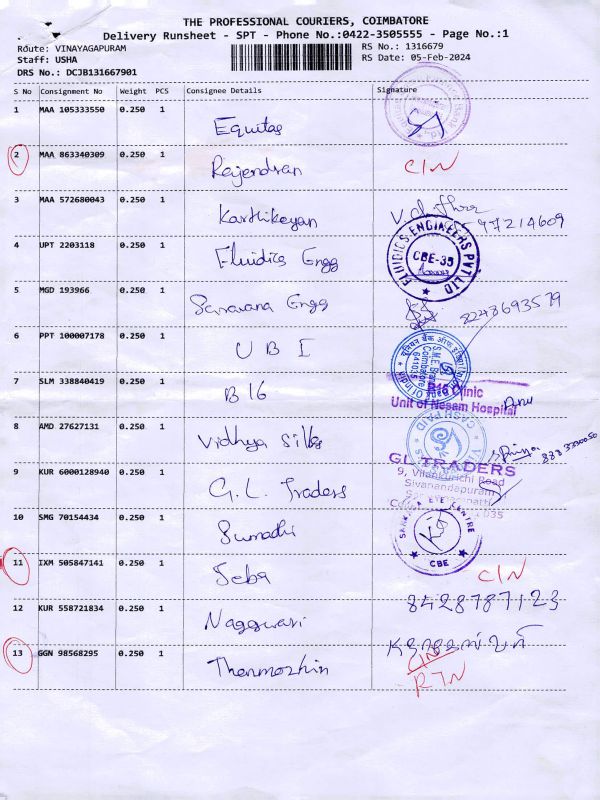 THE PROFESSIONAL COURIERS, COIMBATORE
Delivery Runsheet - SPT - Phone No.:0422-3505555 - Page No.:1
Route: VINAYAGAPURAM
RS No.: 1316679
Staff: USHA
RS Date: 05-Feb-2024
DRS No.: DCJB131667901
S No Consignment No Weight PCS Consignee Details Signature
1 MAA 105333550 0.250 1 Equitas
2 MAA 863340309 0.250 1 Rajendran C/N
3 MAA 572680043 0.250 1 Karthikeyan
97214609
4 UPT 2203118 0.250 1 Fluidics Engg
FLUIDICS ENGINEERS PVT LTD
CBE-35
5 MGD 193966 0.250 1 Saravana Engg 8248693579
6 PPT 100007178 1 U B I
S.M.E. Branch
Coimbatore
641015
7 SLM 338840419 0.250 1 B 16
B16 Clinic
Unit of Nesam Hospital
8 AMD 27627131 0.250 1 Vidhya Silks
CASH PAID
9 KUR 6000128940 0.250 1 G. L. Traders
GL TRADERS
9, Vilankurichi Road
Sivanandapuram
10 SMG 70154434 0.250 1 Sumathi
EYE CENTRE
CBE
11 IXM 505847141 0.250 1 Seba C/N
12 KUR 558721834 0.250 1 Nageswari 8428787123
13 GGN 98568295 0.250 1 Thenmozhin
C/N
RTN